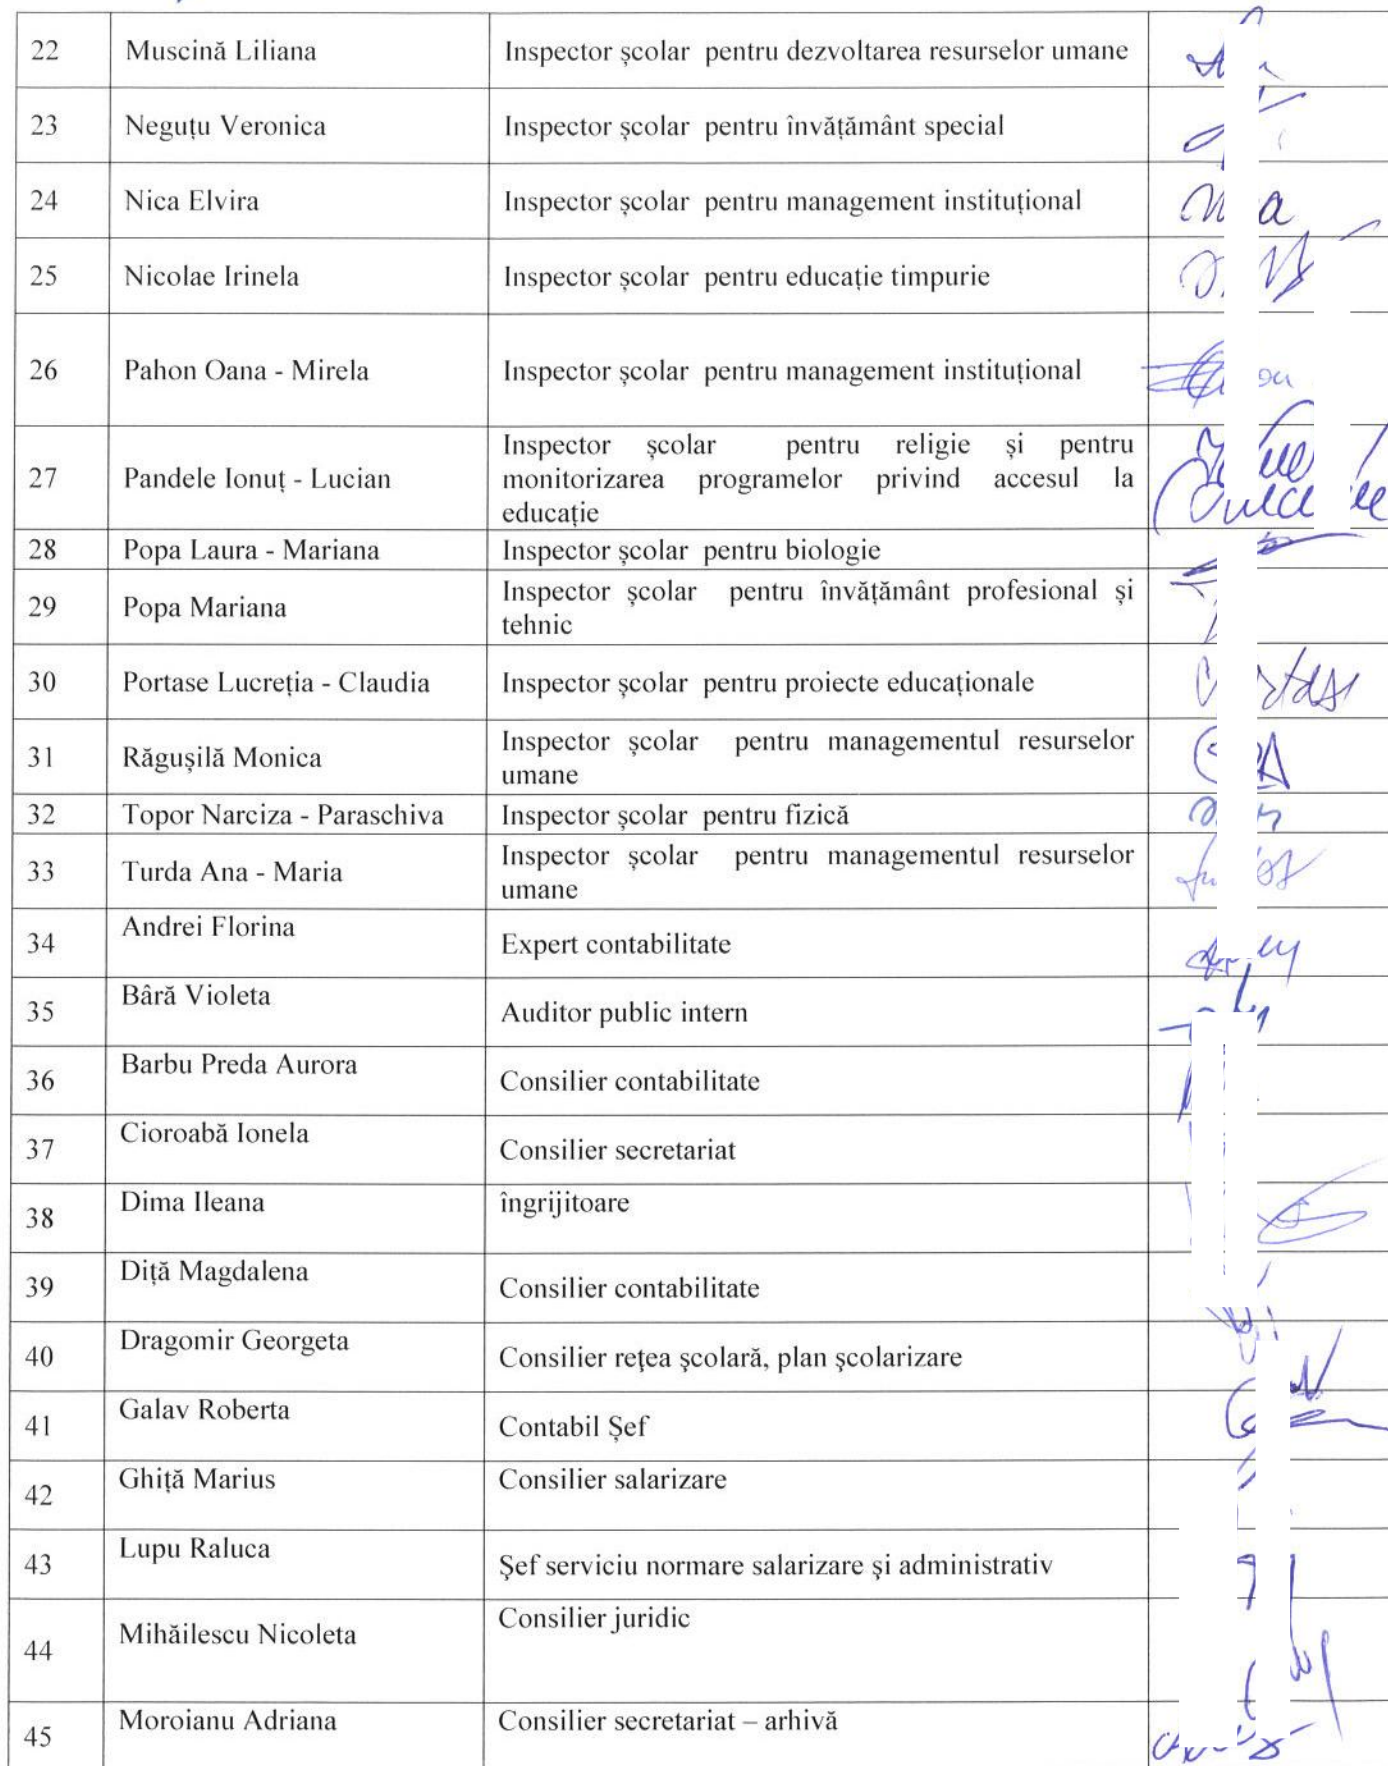 22 Muscină Liliana Inspector școlar pentru dezvoltarea resurselor umane
23 Neguțu Veronica Inspector școlar pentru învățământ special
24 Nica Elvira Inspector școlar pentru management instituțional
25 Nicolae Irinela Inspector școlar pentru educație timpurie
26 Pahon Oana - Mirela Inspector școlar pentru management instituțional
27 Pandele Ionuț - Lucian Inspector școlar pentru religie și pentru
monitorizarea programelor privind accesul la
educație
28 Popa Laura - Mariana Inspector școlar pentru biologie
29 Popa Mariana Inspector școlar pentru învățământ profesional și
tehnic
30 Portase Lucreția - Claudia Inspector școlar pentru proiecte educaționale
31 Răgușilă Monica Inspector școlar pentru managementul resurselor
umane
32 Topor Narciza - Paraschiva Inspector școlar pentru fizică
33 Turda Ana - Maria Inspector școlar pentru managementul resurselor
umane
34 Andrei Florina Expert contabilitate
35 Bâră Violeta Auditor public intern
36 Barbu Preda Aurora Consilier contabilitate
37 Cioroabă Ionela Consilier secretariat
38 Dima Ileana îngrijitoare
39 Diță Magdalena Consilier contabilitate
40 Dragomir Georgeta Consilier reţea şcolară, plan şcolarizare
41 Galav Roberta Contabil Șef
42 Ghiță Marius Consilier salarizare
43 Lupu Raluca Şef serviciu normare salarizare şi administrativ
44 Mihăilescu Nicoleta Consilier juridic
45 Moroianu Adriana Consilier secretariat – arhivă